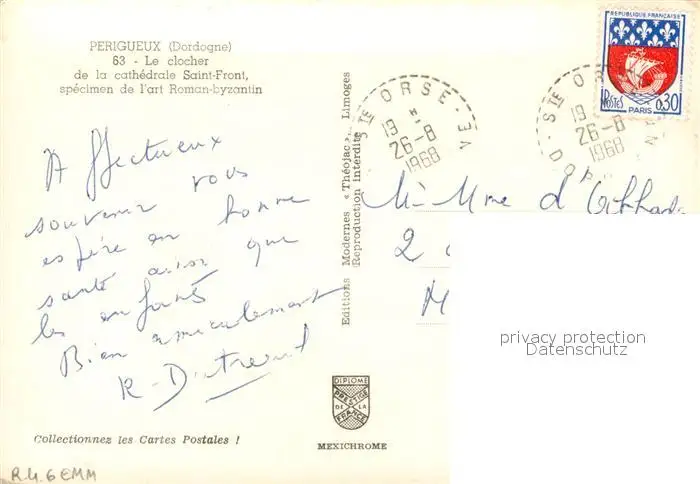 PERIGUEUX (Dordogne)
63 - Le clocher
de la cathédrale Saint-Front,
spécimen de l'art Roman-byzantin
Affectueux
souvenir vous
espère en bonne
santé ainsi que
les enfants
Bien amicalement
R. Dutreuil
Collectionnez les Cartes Postales !
R.4.6 EMM
Editions Modernes « Théojac », Limoges
Reproduction interdite
DIPLOME
PRESTIGE
DE LA
FRANCE
MEXICHROME
STE ORSE
19 H
26-8
1968
STE OR
DORDOGNE
19
26-8
1968
REPUBLIQUE FRANÇAISE
POSTES
PARIS
0,30
Mr Mme d'
2
M
privacy protection
Datenschutz